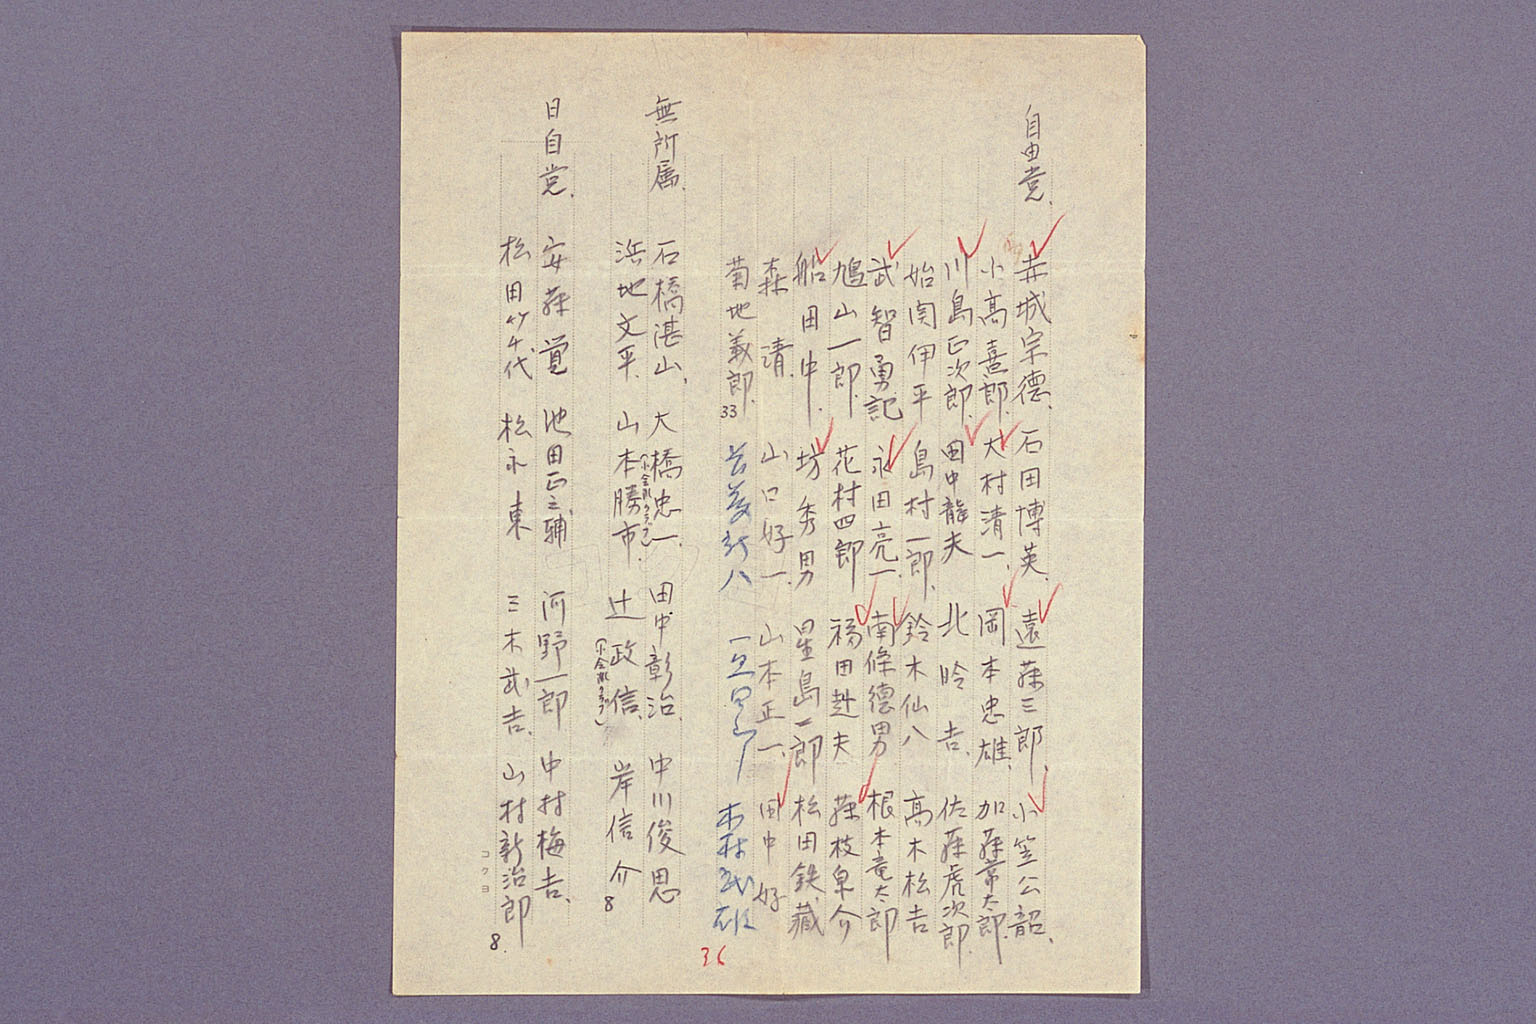 自由党.
赤城宗徳. 石田博英. 遠藤三郎. 小笠公韶.
小高熹郎. 大村清一. 岡本忠雄. 加藤常太郎.
川島正次郎. 田中龍夫 北昤吉. 佐藤虎次郎.
始関伊平 島村一郎. 鈴木仙八 高木松吉
武智勇記 永田亮一. 南條徳男 根本竜太郎
鳩山一郎. 花村四郎 福田赳夫 藤枝泉介
船田中. 坊秀男 星島二郎 松田鉄藏
森清. 山口好一. 山本正一. 田中好
菊地義郎. 33 木村武雄
36
無所属.
石橋湛山. 大橋忠一. 田中彰治. 中川俊思
(小会派クラブ)
浜地文平. 山本勝市. 辻政信. 岸信介 8
(小会派クラブ)
日自党.
安藤覚 池田正之輔 河野一郎 中村梅吉.
松田竹千代 松永東 三木武吉. 山村新治郎 8.
コクヨ